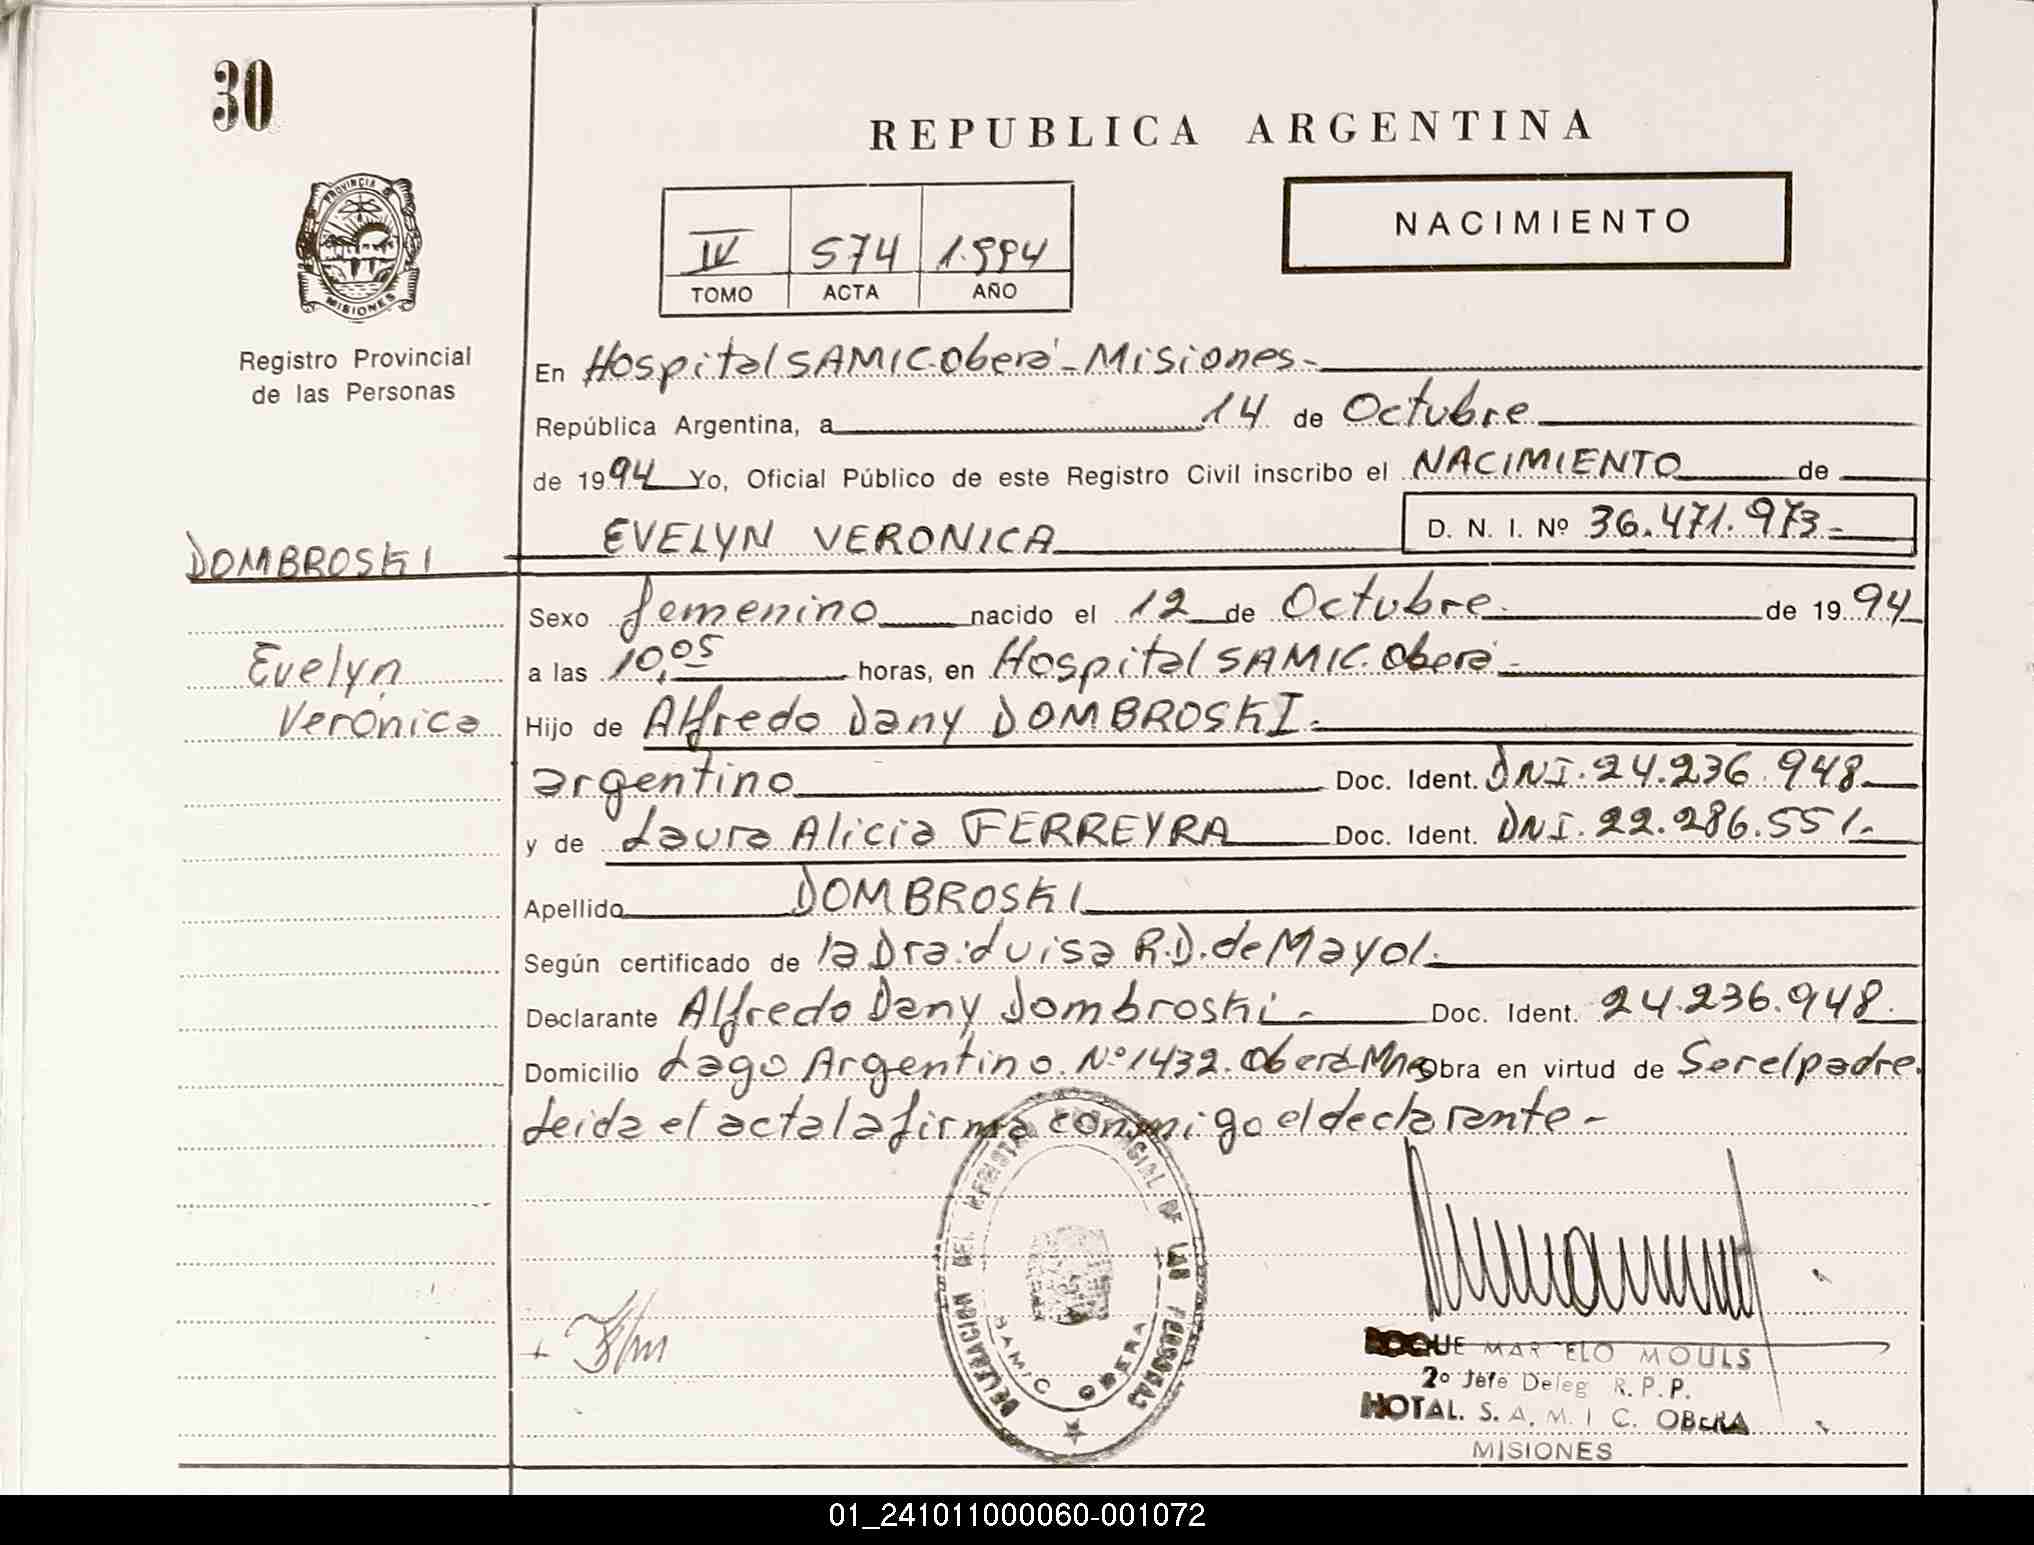 30
REPUBLICA ARGENTINA
NACIMIENTO
IV 574 1.994
TOMO ACTA AÑO
PROVINCIA DE MISIONES
Registro Provincial
de las Personas
En Hospital SAMIC. Oberá - Misiones -
República Argentina, a 14 de Octubre
de 1994 Yo, Oficial Público de este Registro Civil inscribo el NACIMIENTO de
EVELYN VERONICA D. N. I. Nº 36.471.973-
DOMBROSKI
Evelyn
Verónica
Sexo femenino nacido el 12 de Octubre de 1994
a las 10,05 horas, en Hospital SAMIC. Oberá -
Hijo de Alfredo Dany DOMBROSKI -
argentino Doc. Ident. DNI. 24.236.948-
y de Laura Alicia FERREYRA Doc. Ident. DNI. 22.286.551.-
Apellido DOMBROSKI
Según certificado de la Dra: Luisa R.D. de Mayol.
Declarante Alfredo Dany Dombroski - Doc. Ident. 24.236.948.
Domicilio Lago Argentino. Nº 1432. Oberá Mnes Obra en virtud de Ser el padre.
Leida el acta la firma conmigo el declarante -
DELEGACION DEL REGISTRO PROVINCIAL DE LAS PERSONAS
SAMIC OBERA
ROQUE MARCELO MOULS
2º Jefe Deleg R.P.P.
HOTAL. S.A.M.I C. OBERA
MISIONES
01_241011000060-001072